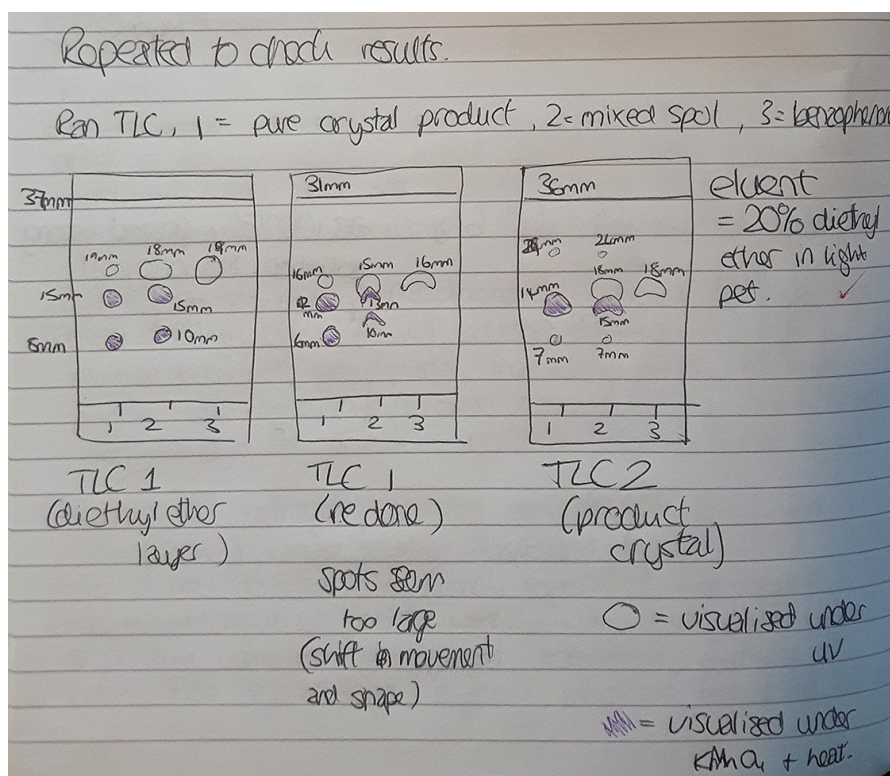 Repeated to check results.
Ran TLC, 1 = pure crystal product, 2 = mixed spot, 3 = benzophenon
37mm
19mm 18mm 18mm
15mm
15mm
8mm
10mm
1 2 3
TLC 1
(diethyl ether
layer)
31mm
16mm 15mm 16mm
12
mm
13mm
6mm
10mm
1 2 3
TLC 1
(redone)
spots seem
too large
(shift in movement
and shape)
36mm
24mm
18mm 18mm
14mm
15mm
7mm 7mm
1 2 3
TLC 2
(product
crystal)
eluent
= 20% diethyl
ether in light
pet.
= visualised under
UV
= visualised under
KMnO4 + heat.